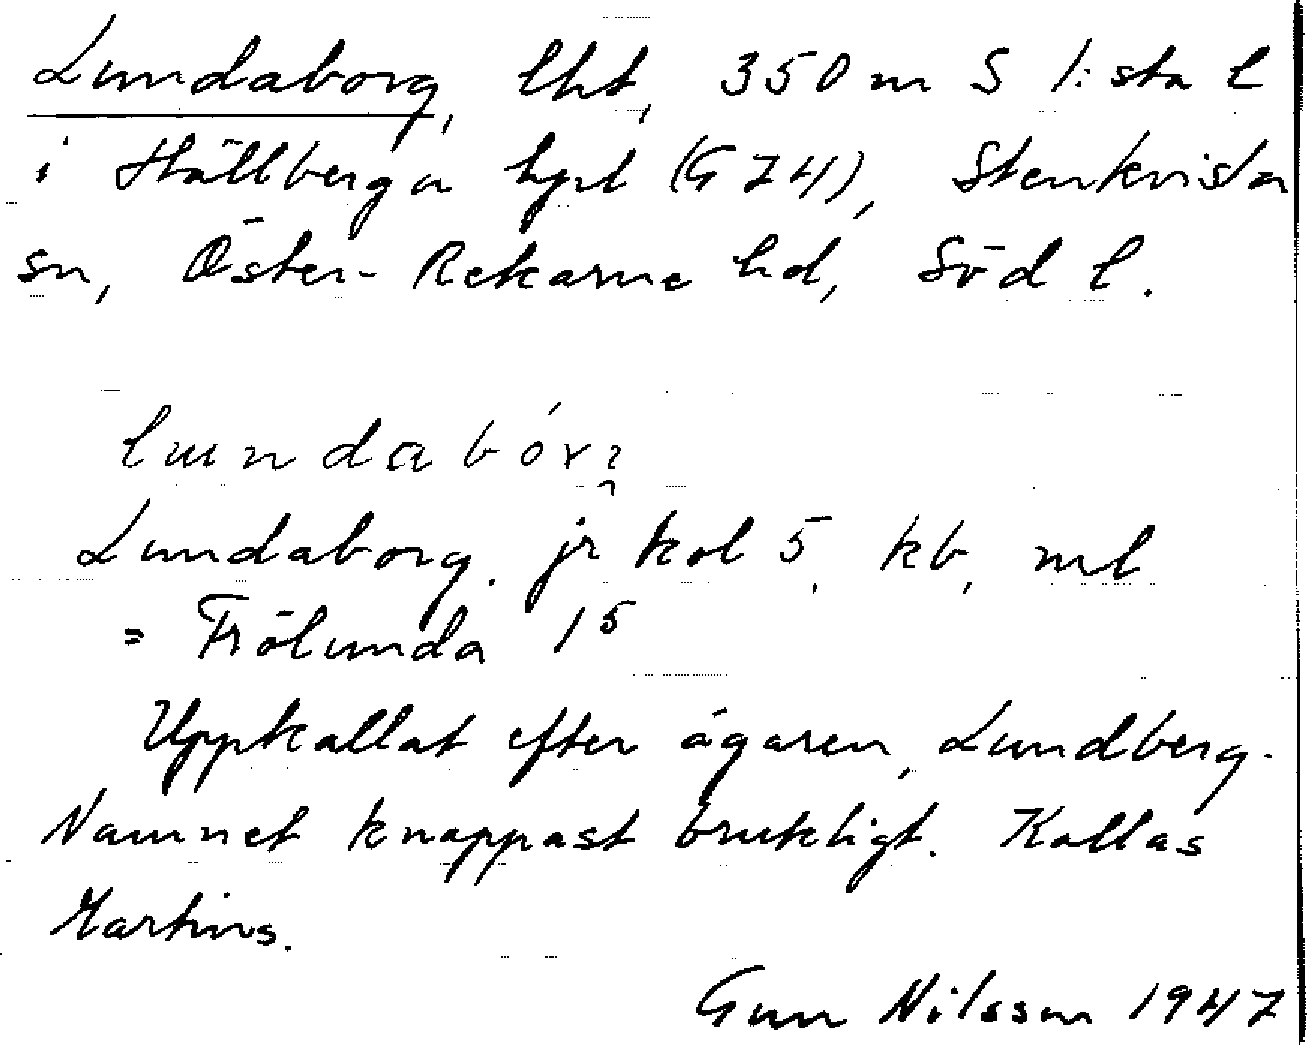 Lundaborg, lht, 350 m S l:sta l
i Hällberga hpl (G 74), Stenkvista
sn, Öster-Rekarne hd, Söd l.
Lundaborg. jr kol 5, kb, ml
= Frölunda 1⁵
Uppkallat efter ägaren, Lundberg.
Namnet knappast brukligt. Kallas
Martins.
Gun Nilsson 1947